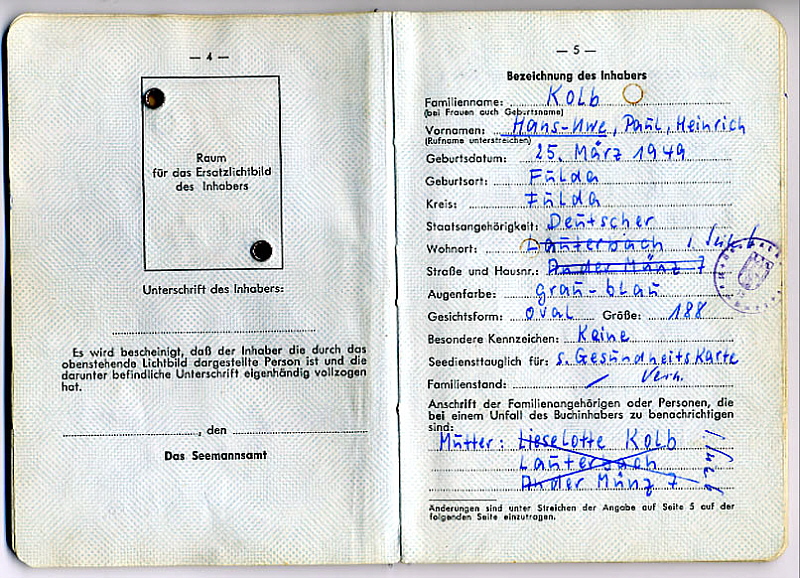 — 4 —
Raum
für das Ersatzlichtbild
des Inhabers
Unterschrift des Inhabers:
Es wird bescheinigt, daß der Inhaber die durch das
obenstehende Lichtbild dargestellte Person ist und die
darunter befindliche Unterschrift eigenhändig vollzogen
hat.
, den
Das Seemannsamt
— 5 —
Bezeichnung des Inhabers
Familienname: Kolb
(bei Frauen auch Geburtsname)
Vornamen: Hans-Uwe, Paul, Heinrich
(Rufname unterstreichen)
Geburtsdatum: 25. März 1949
Geburtsort: Fulda
Kreis: Fulda
Staatsangehörigkeit: Deutscher
Wohnort: Lauterbach
Straße und Hausnr.: An der Münz 7
Augenfarbe: grau-blau
Gesichtsform: oval Größe: 188
Besondere Kennzeichen: Keine
Seediensttauglich für: s. Gesundheitskarte
Familienstand: Verh.
Anschrift der Familienangehörigen oder Personen, die
bei einem Unfall des Buchinhabers zu benachrichtigen
sind:
Mutter: Lieselotte Kolb
Lauterbach
An der Münz 7
Änderungen sind unter Streichen der Angabe auf Seite 5 auf der
folgenden Seite einzutragen.